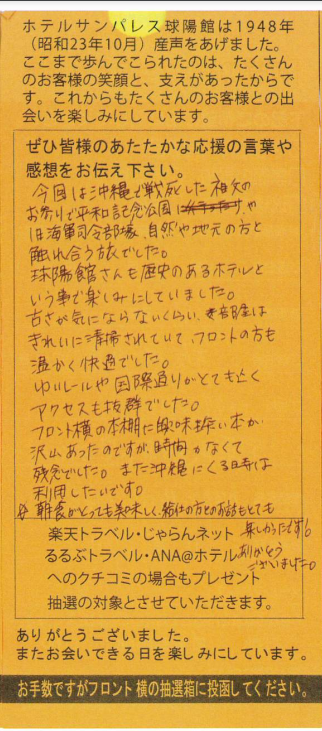 ホテルサンパレス球陽館は1948年
(昭和23年10月)産声をあげました。
ここまで歩んでこられたのは、たくさん
のお客様の笑顔と、支えがあったからで
す。これからもたくさんのお客様との出
会いを楽しみにしています。
ぜひ皆様のあたたかな応援の言葉や
感想をお伝え下さい。
今回は沖縄で戦死した祖父の
お参りで平和記念公園に や
旧海軍司令部壕、自然や地元の方と
触れ合う旅でした。
球陽館さんも歴史のあるホテルと
いう事で楽しみにしていました。
古さが気にならないくらい、お部屋は
きれいに清掃されていて、フロントの方も
温かく快適でした。
ゆいレールや国際通りがとても近く
アクセスも抜群でした。
フロント横の本棚に興味深い本が
沢山あったのですが、時間がなくて
残念でした。また沖縄にくる時は
利用したいです。
朝食がとっても美味しく、給仕の方とのお話もとても
楽しかったです!
ありがとう
ございました。
楽天トラベル・じゃらんネット
るるぶトラベル・ANA@ホテル
へのクチコミの場合もプレゼント
抽選の対象とさせていただきます。
ありがとうございました。
またお会いできる日を楽しみにしています。
お手数ですがフロント横の抽選箱に投函してください。